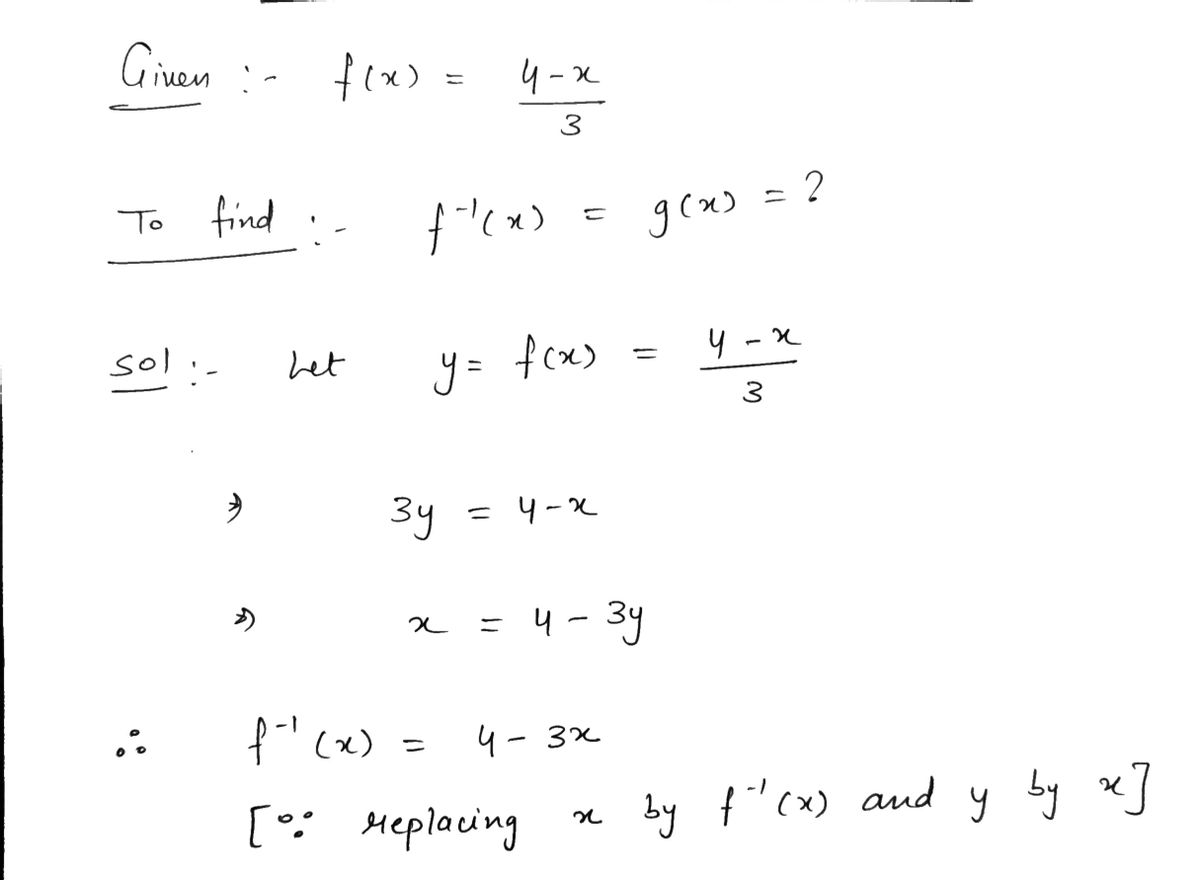 Given :- f(x) = 4-x / 3
To find :- f⁻¹(x) = g(x) = ?
sol :- Let y = f(x) = 4-x / 3
⇒ 3y = 4-x
⇒ x = 4-3y
∴ f⁻¹(x) = 4-3x
[∵ replacing x by f⁻¹(x) and y by x]